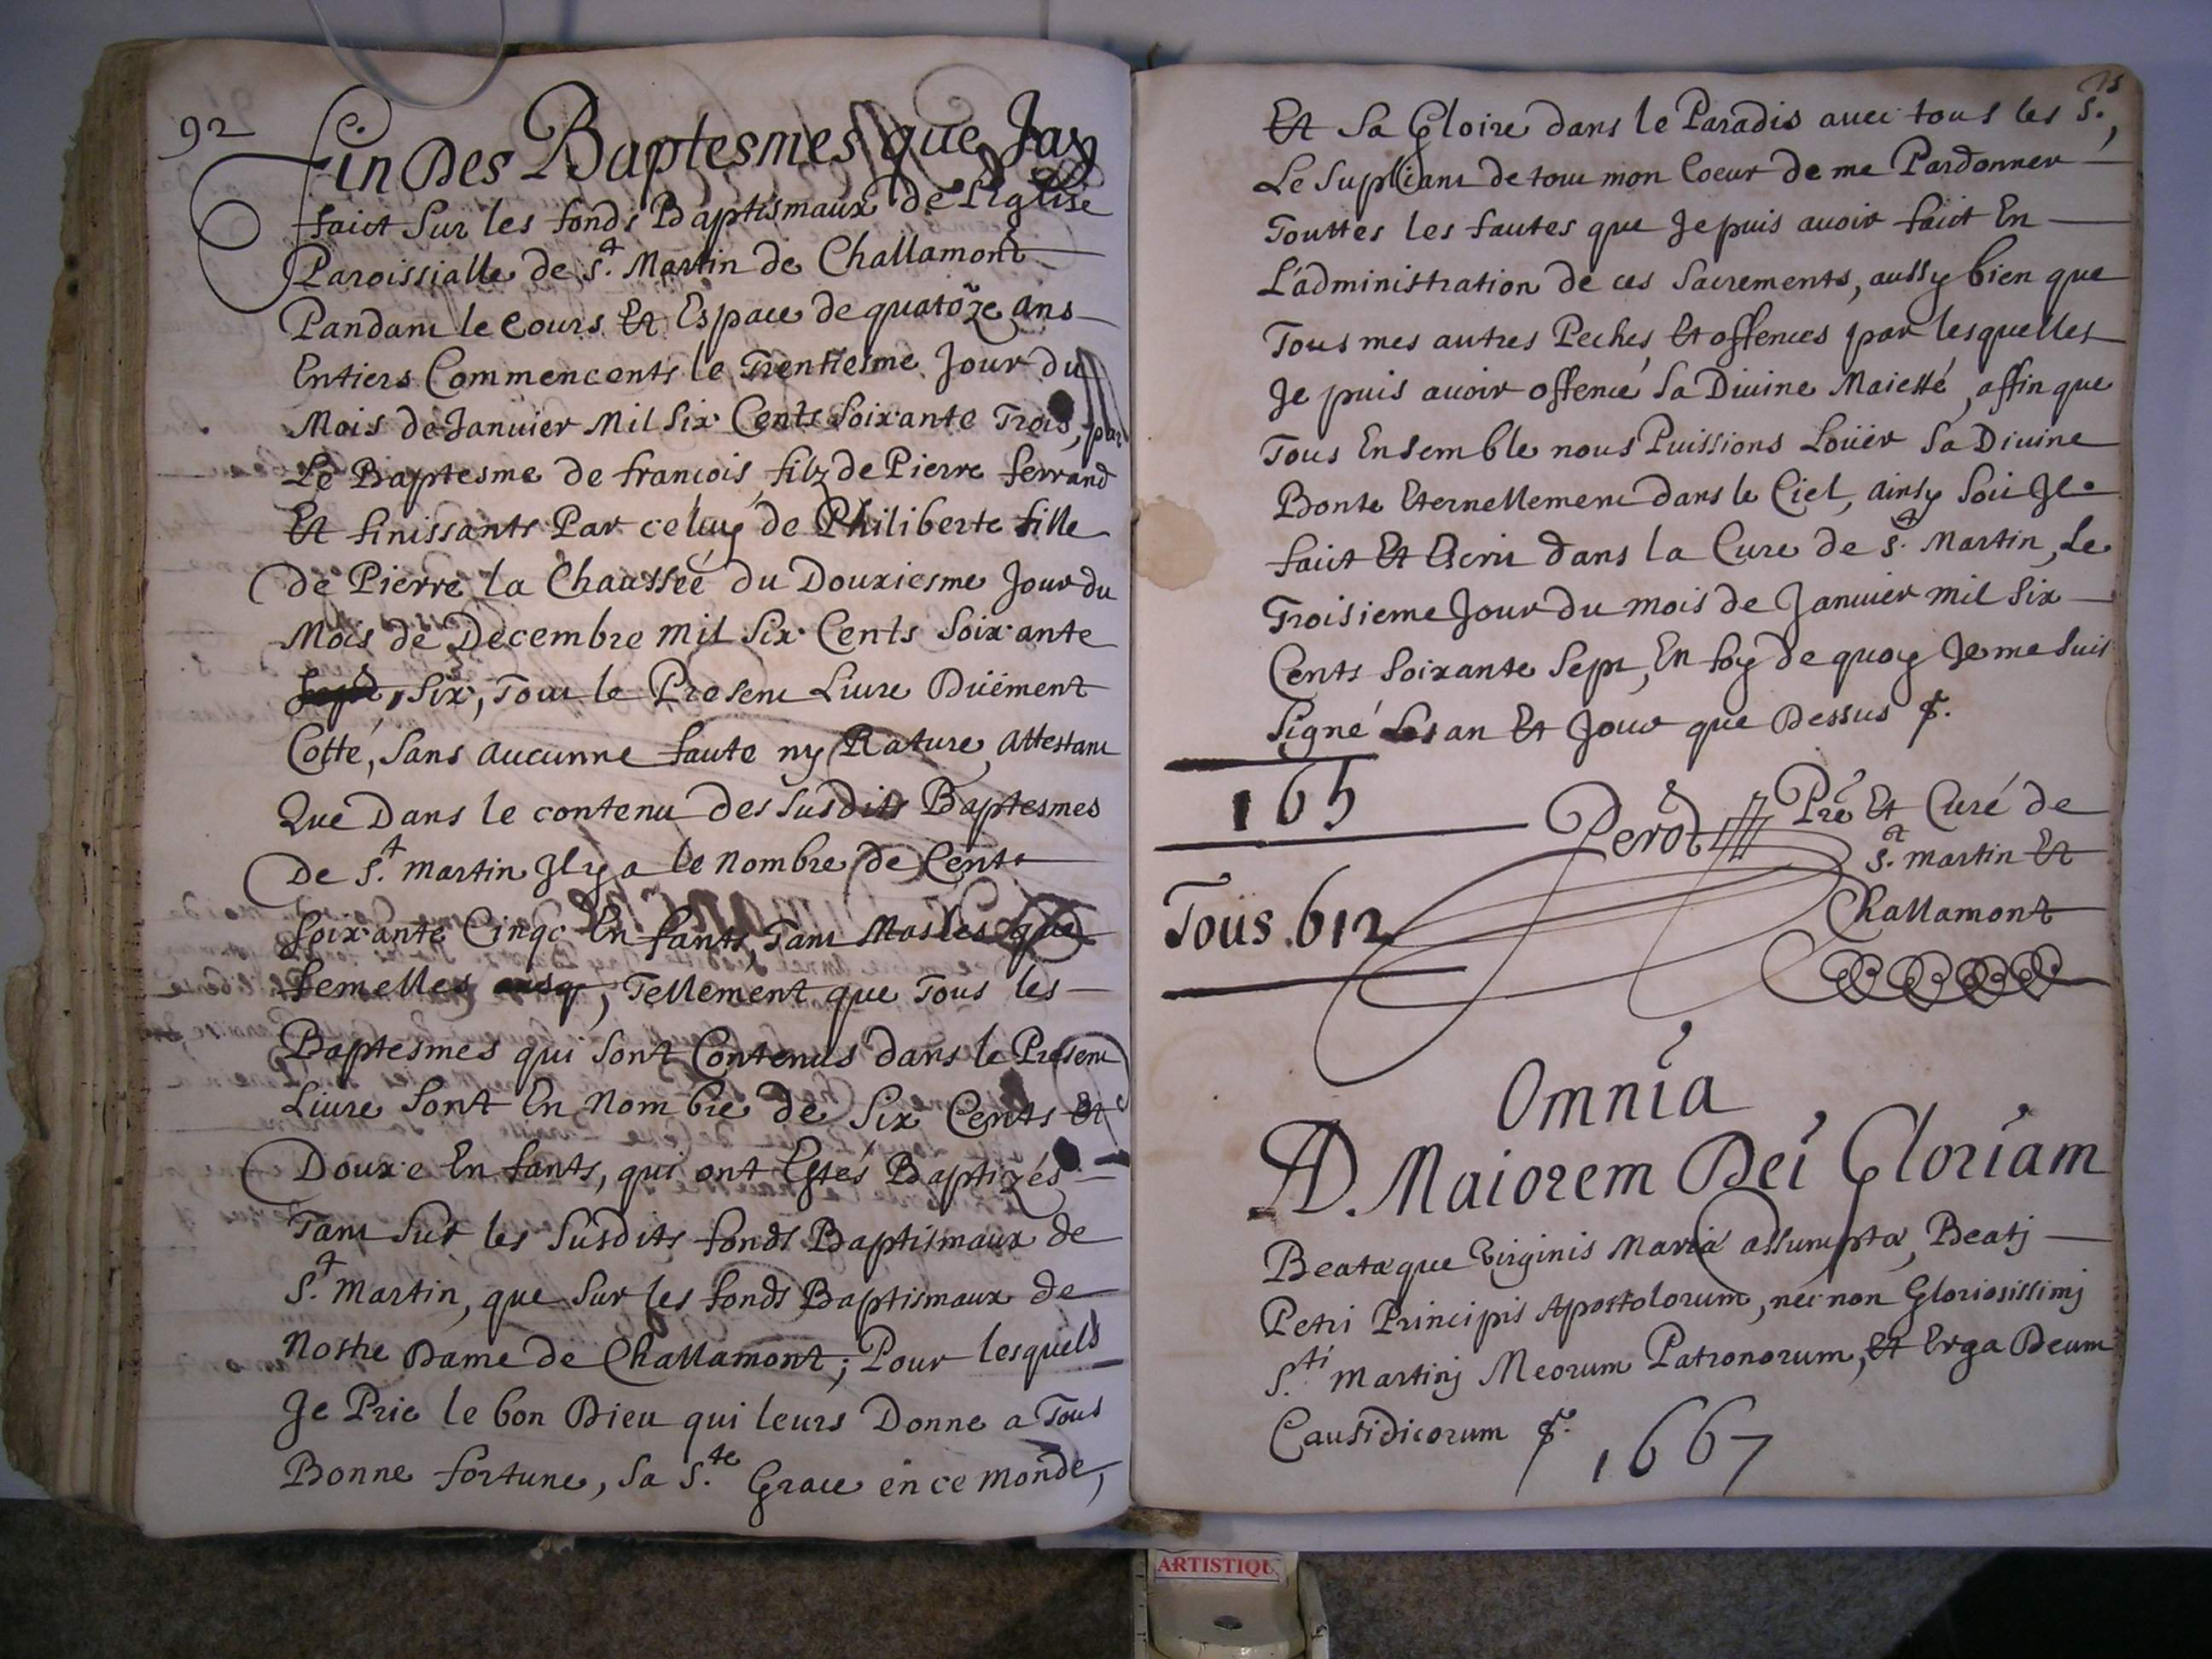 92
Fin Des Baptesmes que Jay
faict Sur les fonds Baptismaux de L'eglise
Paroissialle de S.t Martin de Challamont
Pandant le Cours Et Espace de quatoze ans
Entiers Commencents le Trentiesme Jour du
Mois de Januier Mil Six Cents Soixante Trois, par
Le Baptesme de francois filz de Pierre ferrand
Et finissants Par celuy de Philiberte fille
de Pierre la Chaussée du Douxiesme Jour du
Mois de Decembre mil Six Cents Soixante
sept, Six, Tout le Present Liure Düement
Cotté, Sans aucunne faute ny Rature, attestant
Que Dans le contenu des Susdits Baptesmes
De S.t Martin Il y a le Nombre de Cent
Soixante Cinqc Enfants Tant Masles que
femelles, Tellement que Tous les
Baptesmes qui Sont Contenus dans le Present
Liure Sont En Nombre de Six Cents Et
Douxe Enfants, qui ont Estés Baptizés
Tant Sur les Susdits fonds Baptismaux de
S.t Martin, que Sur les fonds Baptismaux de
Nostre Dame de Challamont; Pour lesquels
Je Prie le bon Dieu qui leurs Donne a Tous
Bonne fortune, Sa S.te Grace en ce monde,
Et Sa Gloire dans le Paradis auec tous les S.ts,
Le Supliant de tout mon Coeur de me Pardonner
Touttes les fautes que Je puis auoir faict En
L'administration de ces Sacrements, aussy bien que
Tous mes autres Peches, Et offences par lesquelles
Je puis auoir offencé Sa Diuine Maiesté, affin que
Tous Ensemble nous Puissions Loüer Sa Diuine
Bonte Eternellement dans le Ciel, ainsy Soit Il.
faict Et Escrit dans la Cure de S.t Martin, Le
Troisieme Jour du mois de Januier mil Six
Cents Soixante Sept, En foy de quoy Je me Suis
Signé Les an Et Jour que Dessus
165
Perod Pre Et Curé de
S.t Martin Et
Challamont
Tous 612
Omnia
AD. Maiorem Dei Gloriam
Beatæque Virginis Mariæ assumptæ, Beatj
Petri Principis Apostolorum, nec non Gloriosissimj
S.ti Martinj Meorum Patronorum, Et Erga Deum
Causidicorum
1667
ARTISTIQU